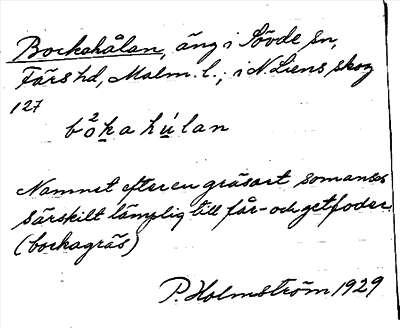 Bockahålan, äng i Sövde sn,
Färs hd, Malm. l.; i N. Liens skog
127
bo²ka húlan
Namnet efter en gräsart som anses
särskilt lämplig till får- och getfoder
(bockagräs)
P. Holmström 1929